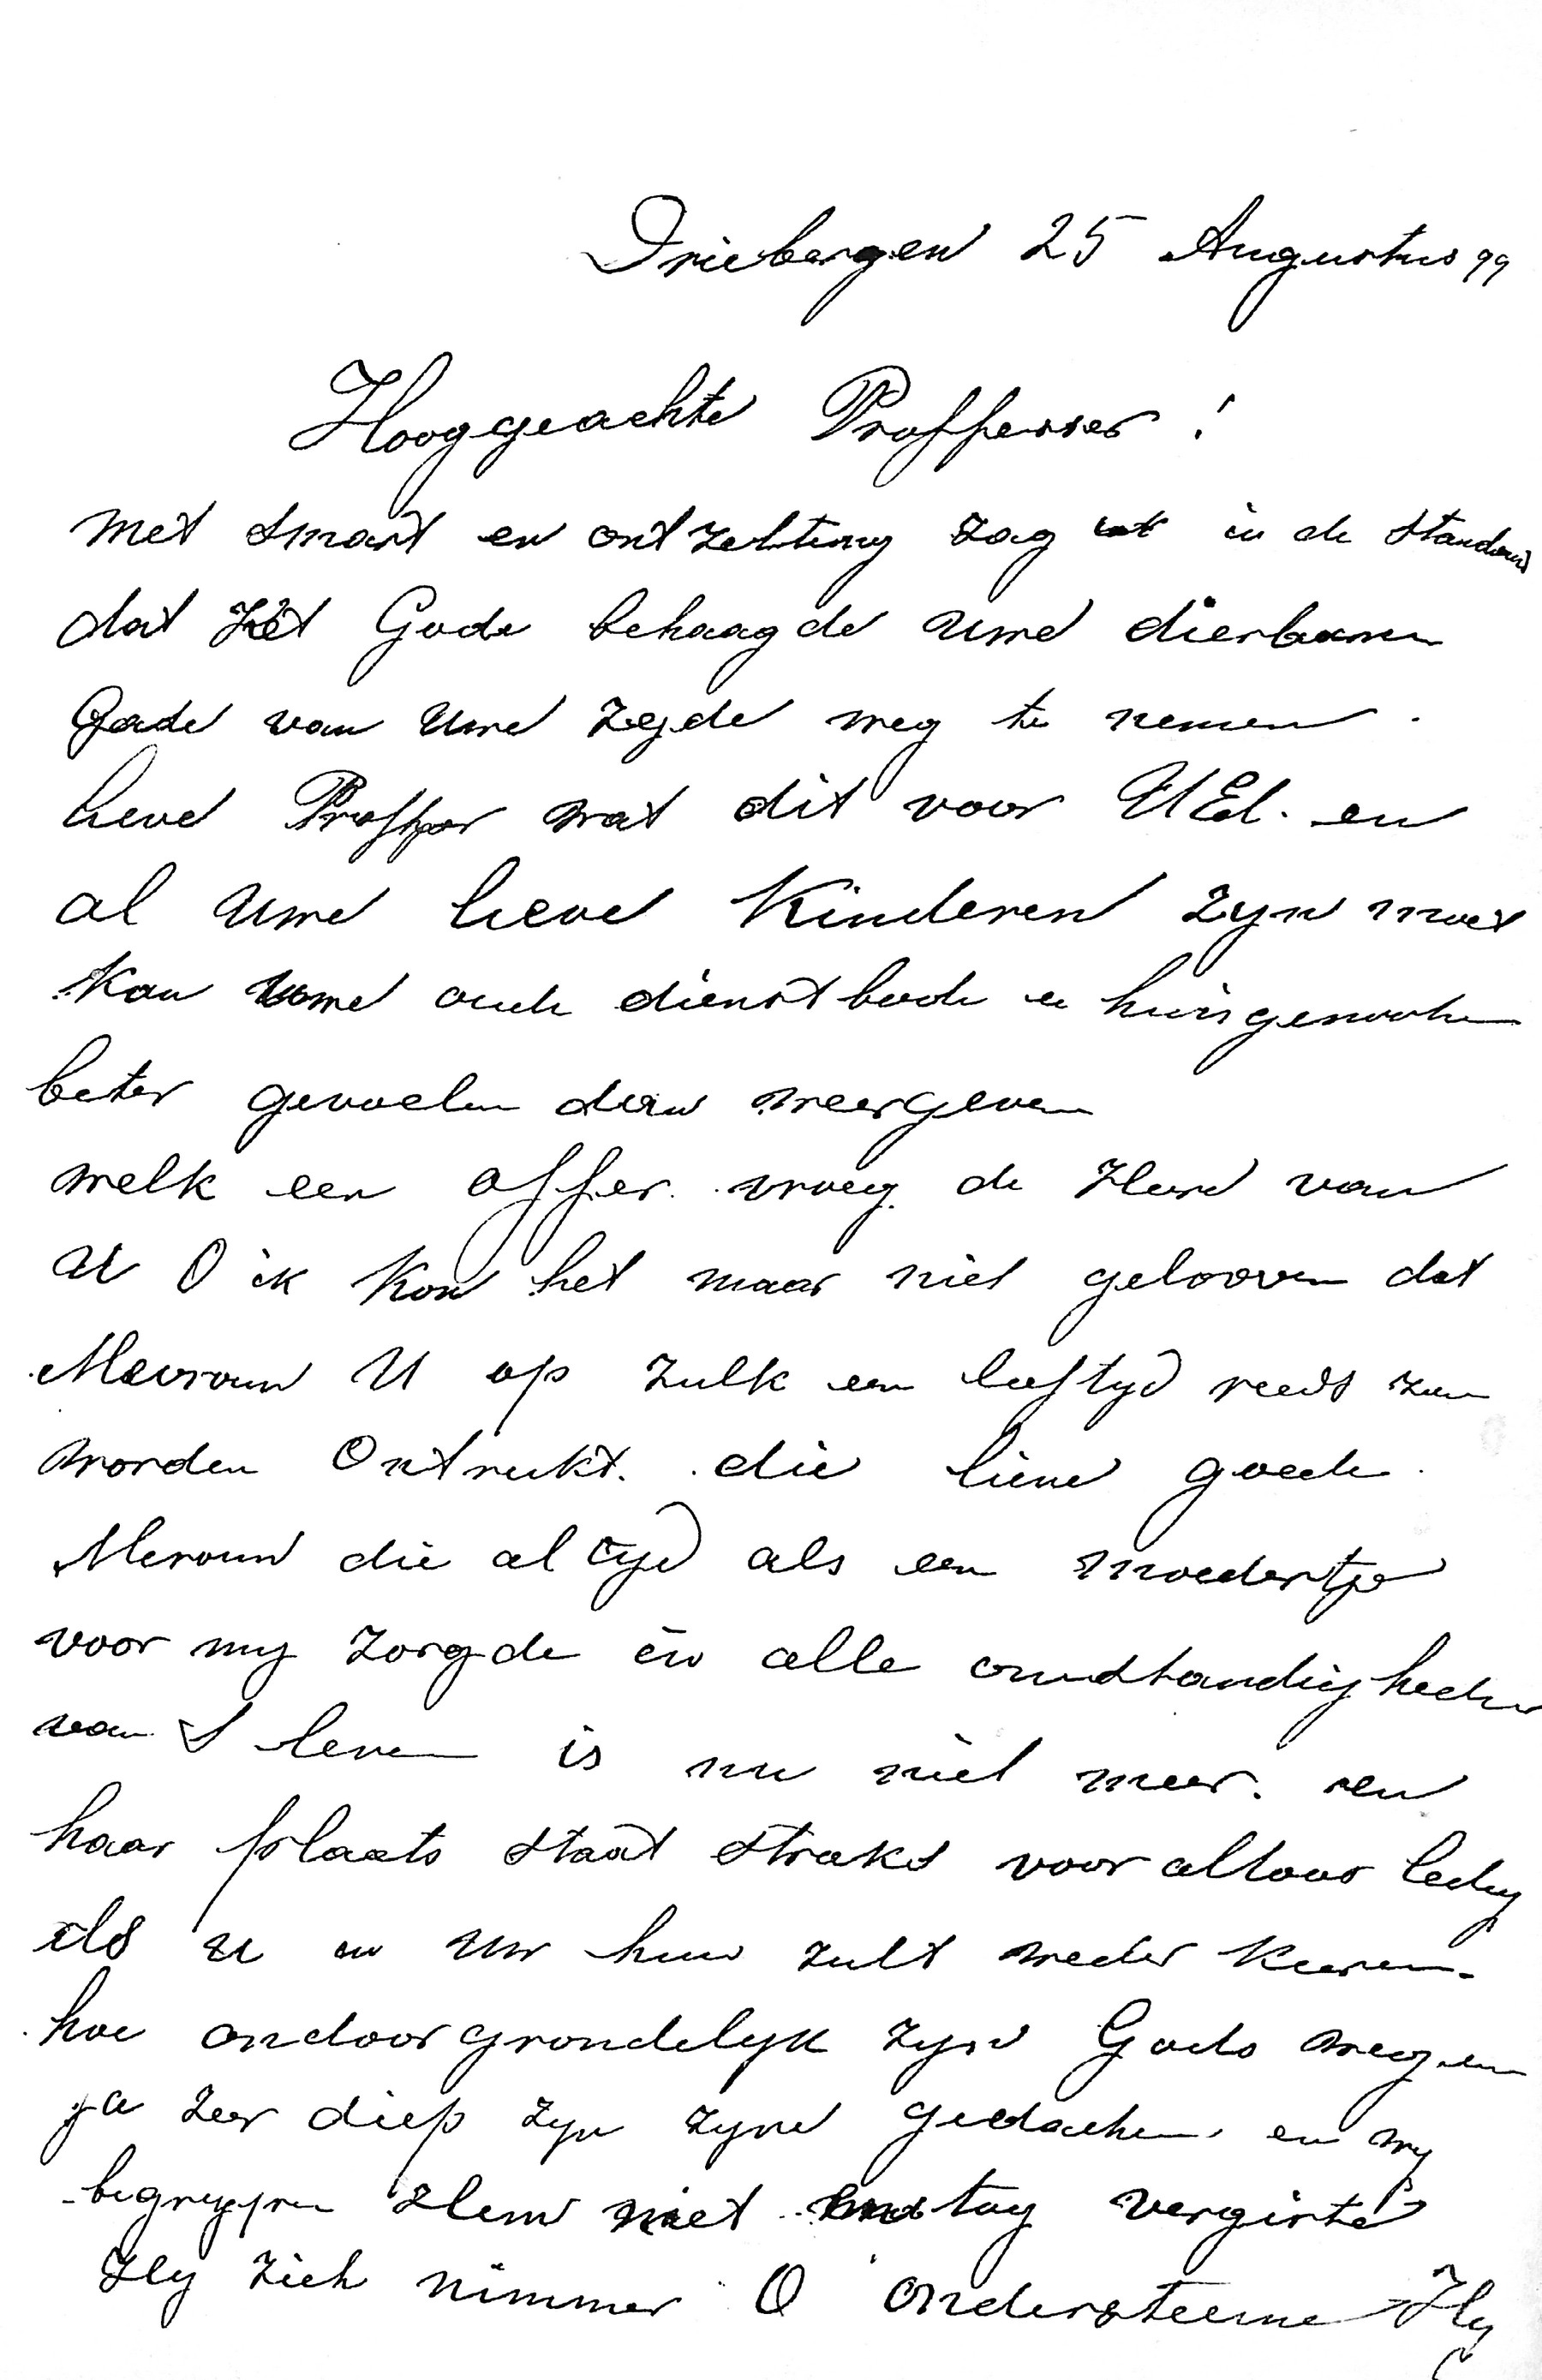 Driebergen 25 Augustus 99
Hooggeachte Proffesser!
met smart en ontzetting zag ik in de Standaard
dat Het Gode behaagde uwe dierbaren
Gade van Uwe Zeyde weg te nemen.
lieve Proffser wat dit voor UEd. en
al Uwe lieve Kinderen zyn moet
Kan uwe oude dienstbode en huisgenoote
beter gevoelen dan weergeven
welk een offer vroeg de Heere van
U O ik Kon het maar niet gelooven dat
Mevrouw U op zulk een leeftyd reeds zou
worden Ontrukt. die lieve goede
Mevrouw die altyd als een moedertje
voor my zorgde in alle omstandigheden
van S leven is nu niet meer. en
haar plaats staat straks voor altoos ledig
als u in Uw huis zult weder keeren.
hoe ondoorgrondelyk zyn Gods wegen
ja zeer diep zyn zyne gedachten en wy
begrypen Hem niet tog vergiste
Hy zich nimmer O ondersteune Hy